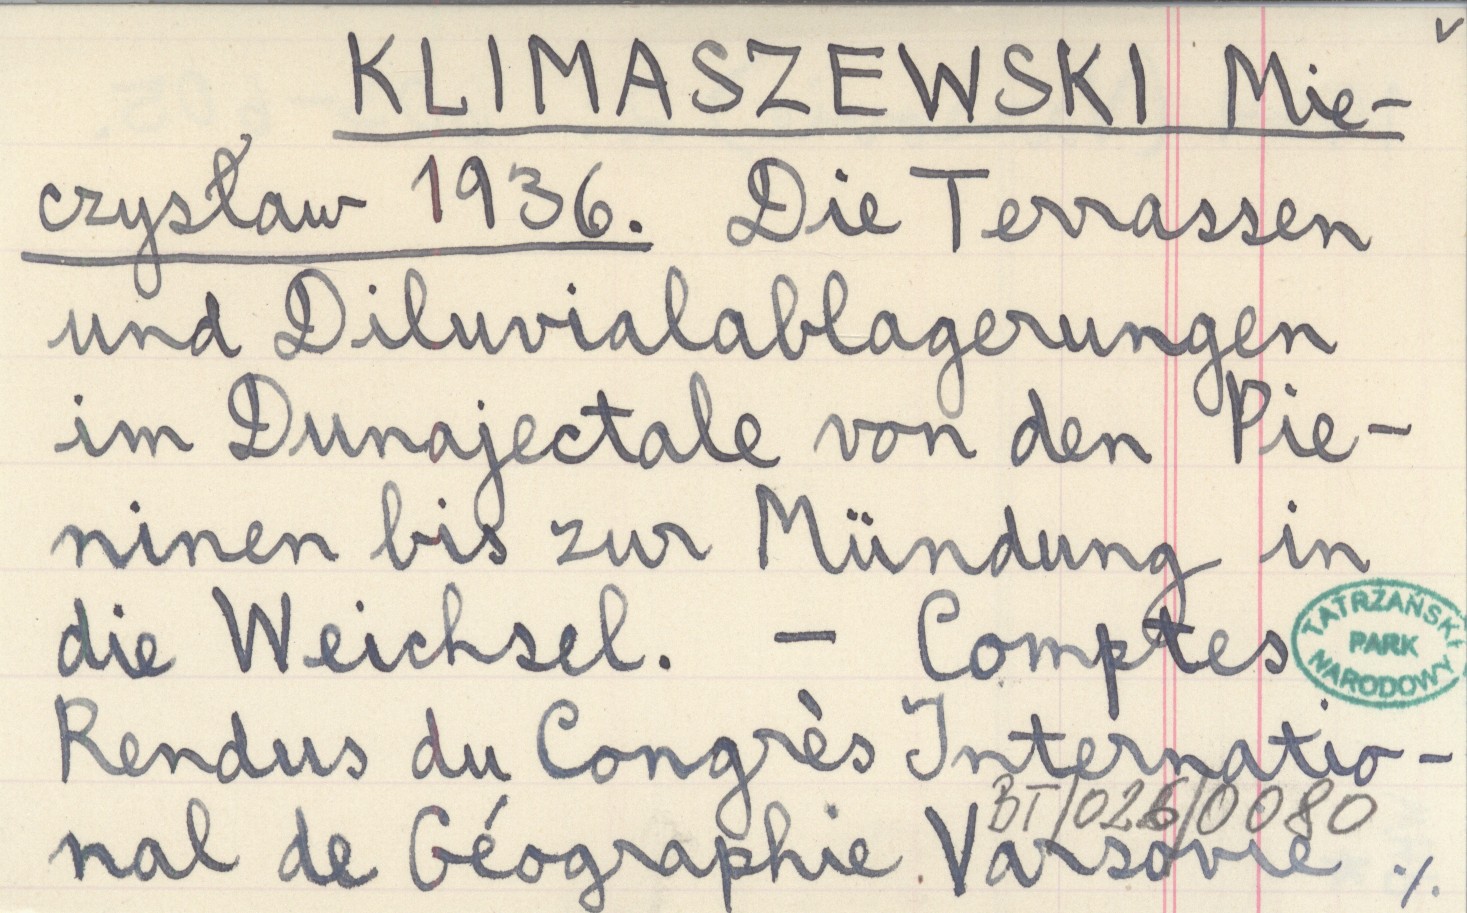 v
KLIMASZEWSKI Mie-
czysław 1936. Die Terrassen
und Diluvialablagerungen
im Dunajectale von den Pie-
ninen bis zur Mündung in
die Weichsel. — Comptes
TATRZAŃSKI
PARK
NARODOWY
Rendus du Congrès Internatio-
BT/026/0080
nal de Géographie Varsovie ./.